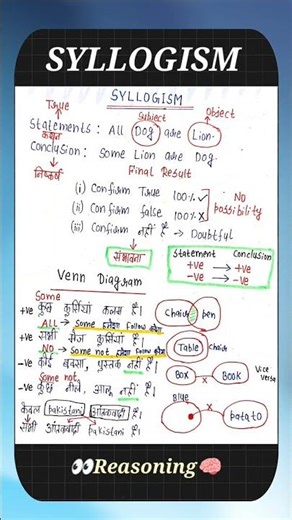 SYLLOGISM
SYLLOGISM
True Subject Object
Statements: All Dog are Lion.
कथन
Conclusion: Some Lion are Dog.
निष्कर्ष Final Result
(i) Confirm True 100% ✓
(ii) Confirm false 100% ✗
No possibility
(iii) Confirm नहीं है → Doubtful
संभावना
Statement Conclusion
+ve → +ve
-ve → -ve
Venn Diagram
Some
+ve कुछ कुर्सियां कलम हैं। Chair pen
ALL → Some हमेशा follow करेगा
+ve सभी मेज कुर्सियां हैं। Table Chair
NO → Some not हमेशा follow करेगा
-ve कोई बक्सा, पुस्तक नहीं है। Box × Book Vice Versa
Some not
-ve कुछ नीले, आलू नहीं हैं। Blue × potato
केवल Pakistani आतंकवादी हैं।
सभी आतंकवादी Pakistani हैं।
👀Reasoning🧠